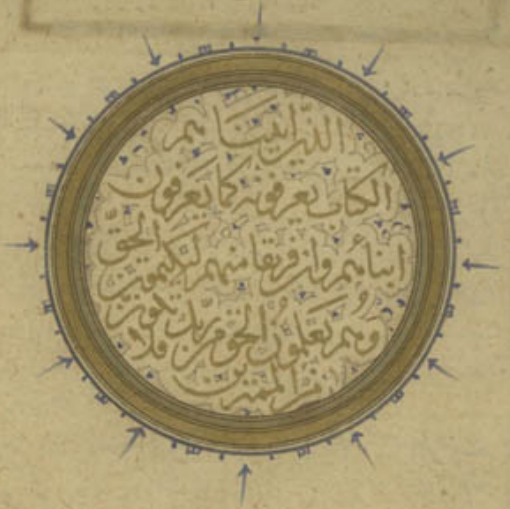 الذين اتيناهم
الكتاب يعرفونه كما يعرفون
ابناءهم وان فريقا منهم ليكتمون الحقّ
وهم يعلمون الحق من ربّك فلا تكوننّ
من الممترين